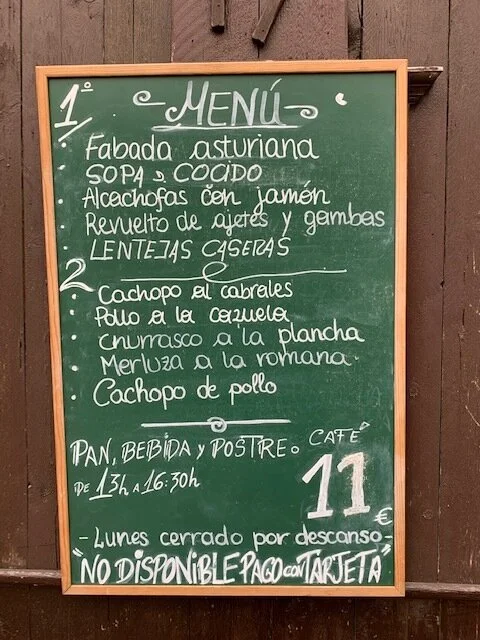 1º
MENÚ
· Fabada asturiana
· SOPA D COCIDO
· Alcachofas con jamón
· Revuelto de ajetes y gambas
· LENTEJAS CASERAS
2
· Cachopo al cabrales
· Pollo a la cazuela
· churrasco a la plancha
· Merluza a la romana
· Cachopo de pollo
PAN, BEBIDA y POSTRE o CAFÉ
DE 13h A 16:30h
11 €
- Lunes cerrado por descanso -
"NO DISPONIBLE PAGO con TARJETA"